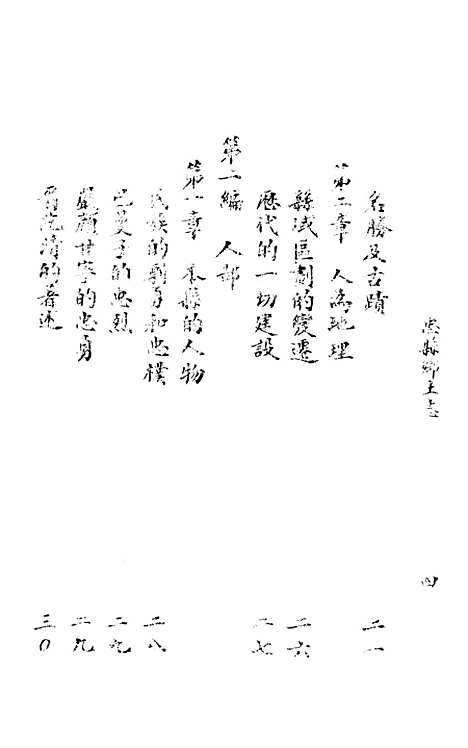 忠縣鄉土志
四
名勝及古蹟 二一
第二章 人為地理
縣域區劃的變遷 二六
歷代的一切建設 二七
第二編 人部
第一章 本縣的人物
民族的勁勇和忠樸 二八
巴蔓子的忠烈 二九
嚴顏甘寧的忠勇 二九
的著述 三〇